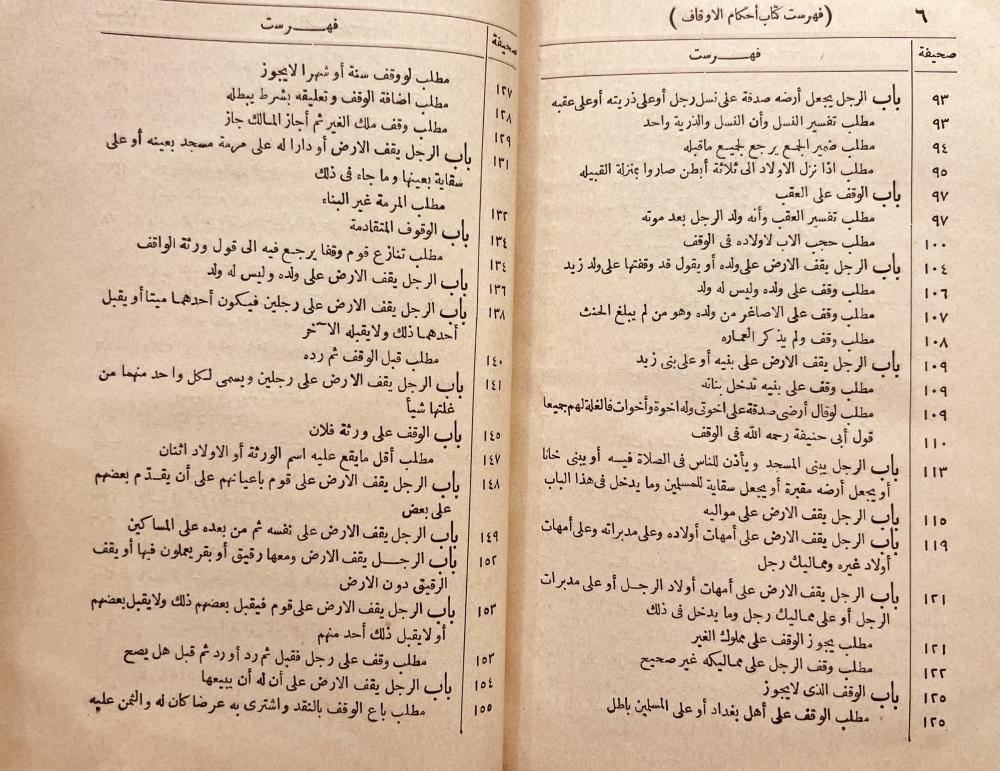 ٦
(فهرست كتاب أحكام الاوقاف)
صحيفة
فهـــرست
٩٣ باب الرجل يجعل أرضه صدقة على نسل رجل أو على ذريته أو على عقبه
٩٣ مطلب تفسير النسل وأن النسل والذرية واحد
٩٤ مطلب ضمير الجمع يرجع لجميع ماقبله
٩٥ مطلب اذا نزل الاولاد الى ثلاثة أبطن صاروا بمنزلة القبيله
٩٧ باب الوقف على العقب
٩٧ مطلب تفسير العقب وأنه ولد الرجل بعد موته
١٠٠ مطلب حجب الاب لاولاده فى الوقف
١٠٤ باب الرجل يقف الارض على ولده أو يقول قد وقفتها على ولد زيد
١٠٦ مطلب وقف على ولده وليس له ولد
١٠٧ مطلب وقف على الاصاغر من ولده وهو من لم يبلغ الحنث
١٠٨ مطلب وقف ولم يذكر العماره
١٠٩ باب الرجل يقف الارض على بنيه أو على بنى زيد
١٠٩ مطلب وقف على بنيه تدخل بناته
١٠٩ مطلب لوقال أرضى صدقة على اخوتى وله اخوة وأخوات فالغلة لهم جميعا
١١٠ قول أبى حنيفة رحمه الله فى الوقف
١١٣ باب الرجل يبنى المسجد ويأذن للناس فى الصلاة فيه أو يبنى خانا
أو يجعل أرضه مقبرة أو يجعل سقاية للمسلمين وما يدخل فى هذا الباب
١١٥ باب الرجل يقف الارض على مواليه
١١٩ باب الرجل يقف الارض على أمهات أولاده وعلى مدبراته وعلى أمهات
أولاد غيره ومماليك رجل
١٢١ باب الرجل يقف الارض على أمهات أولاد الرجل أو على مدبرات
الرجل أو على مماليك رجل وما يدخل فى ذلك
١٢١ مطلب يجوز الوقف على مملوك الغير
١٢٢ مطلب وقف الرجل على مماليكه غير صحيح
١٢٥ باب الوقف الذى لايجوز
١٢٥ مطلب الوقف على أهل بغداد أو على المسلمين باطل
صحيفة
فهـــرست
١٢٧ مطلب لو وقف سنة أو شهرا لايجوز
١٢٨ مطلب اضافة الوقف وتعليقه بشرط يبطله
١٢٩ مطلب وقف ملك الغير ثم أجاز المالك جاز
١٣١ باب الرجل يقف الارض أو دارا له على مرمة مسجد بعينه أو على
سقاية بعينها وما جاء فى ذلك
١٣٢ مطلب المرمة غير البناء
١٣٤ باب الوقوف المتقادمة
١٣٤ مطلب تنازع قوم وقفا يرجع فيه الى قول ورثة الواقف
١٣٦ باب الرجل يقف الارض على ولده وليس له ولد
١٣٨ باب الرجل يقف الارض على رجلين فيكون أحدهما ميتا أو يقبل
أحدهما ذلك ولايقبله الآخر
١٤٠ مطلب قبل الوقف ثم رده
١٤١ باب الرجل يقف الارض على رجلين ويسمى لكل واحد منهما من
غلتها شيأ
١٤٥ باب الوقف على ورثة فلان
١٤٧ مطلب أقل مايقع عليه اسم الورثة أو الاولاد اثنان
١٤٨ باب الرجل يقف الارض على قوم باعيانهم على أن يقدّم بعضهم
على بعض
١٤٩ باب الرجل يقف الارض على نفسه ثم من بعده على المساكين
١٥٢ باب الرجل يقف الارض ومعها رقيق أو بقر يعملون فيها أو يقف
الرقيق دون الارض
١٥٣ باب الرجل يقف الارض على قوم فيقبل بعضهم ذلك ولايقبل بعضهم
أو لايقبل ذلك أحد منهم
١٥٣ مطلب وقف على رجل فقبل ثم رد أو رد ثم قبل هل يصح
١٥٤ باب الرجل يقف الارض على أن له أن يبيعها
١٥٥ مطلب باع الوقف بالنقد واشترى به عرضا كان له والثمن عليه